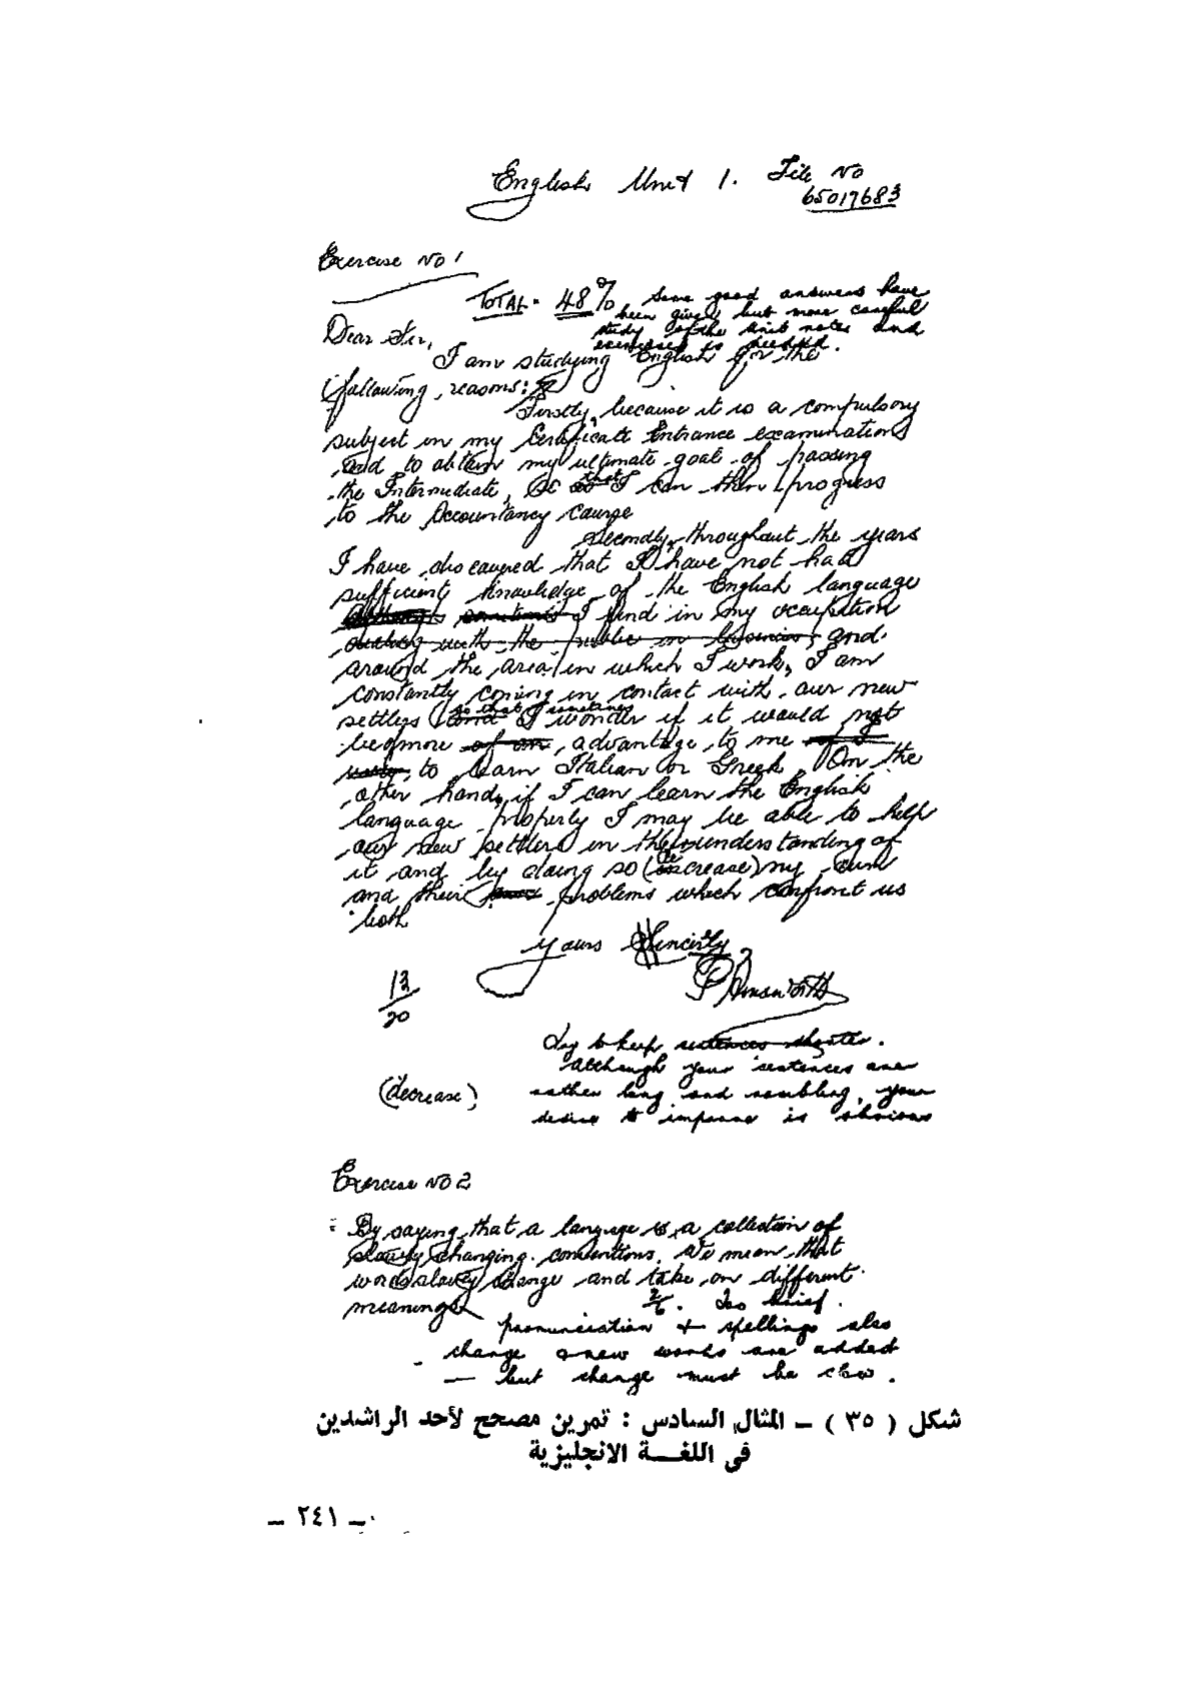 English Unit 1. File No
65017683
Exercise No 1
TOTAL = 48% Some good answers have
been given but more careful
study of the Unit notes and
exercises is needed.
Dear Sir,
I am studying English for the
following, reasons:
Firstly, because it is a compulsory
subject in my Certificate Entrance examinations
and to obtain my ultimate goal of passing
the Intermediate, so that I can then progress
to the Accountancy Caurge
Secondly, throughout the years
I have discovered that I have not had
sufficient knowledge of the English language
I find in my occupation
and
around the area in which I work, I am
constantly coming in contact with our new
settlers so that sometimes I wonder if it would not
be more advantage to me
to learn Italian or Greek. On the
other hand, if I can learn the English
language properly I may be able to help
our new settlers in the understanding of
it and by doing so (increase) my own
and their problems which confront us
both
Yours Sincirly
13
20
Try to keep sentences shorter.
Although your sentences are
(decrease) rather long and rambling, your
desire to improve is obvious
Exercise No 2
By saying that a language is a collection of
slowly changing conventions. We mean that
words slowly change and take on different
meanings
2/6. Too brief.
pronunciation + spellings also
change & new words are added
— but change must be slow.
شكل ( ٣٥ ) – المثال السادس : تمرين مصحح لأحد الراشدين
فى اللغـــة الانجليزية
– ٢٤١ –